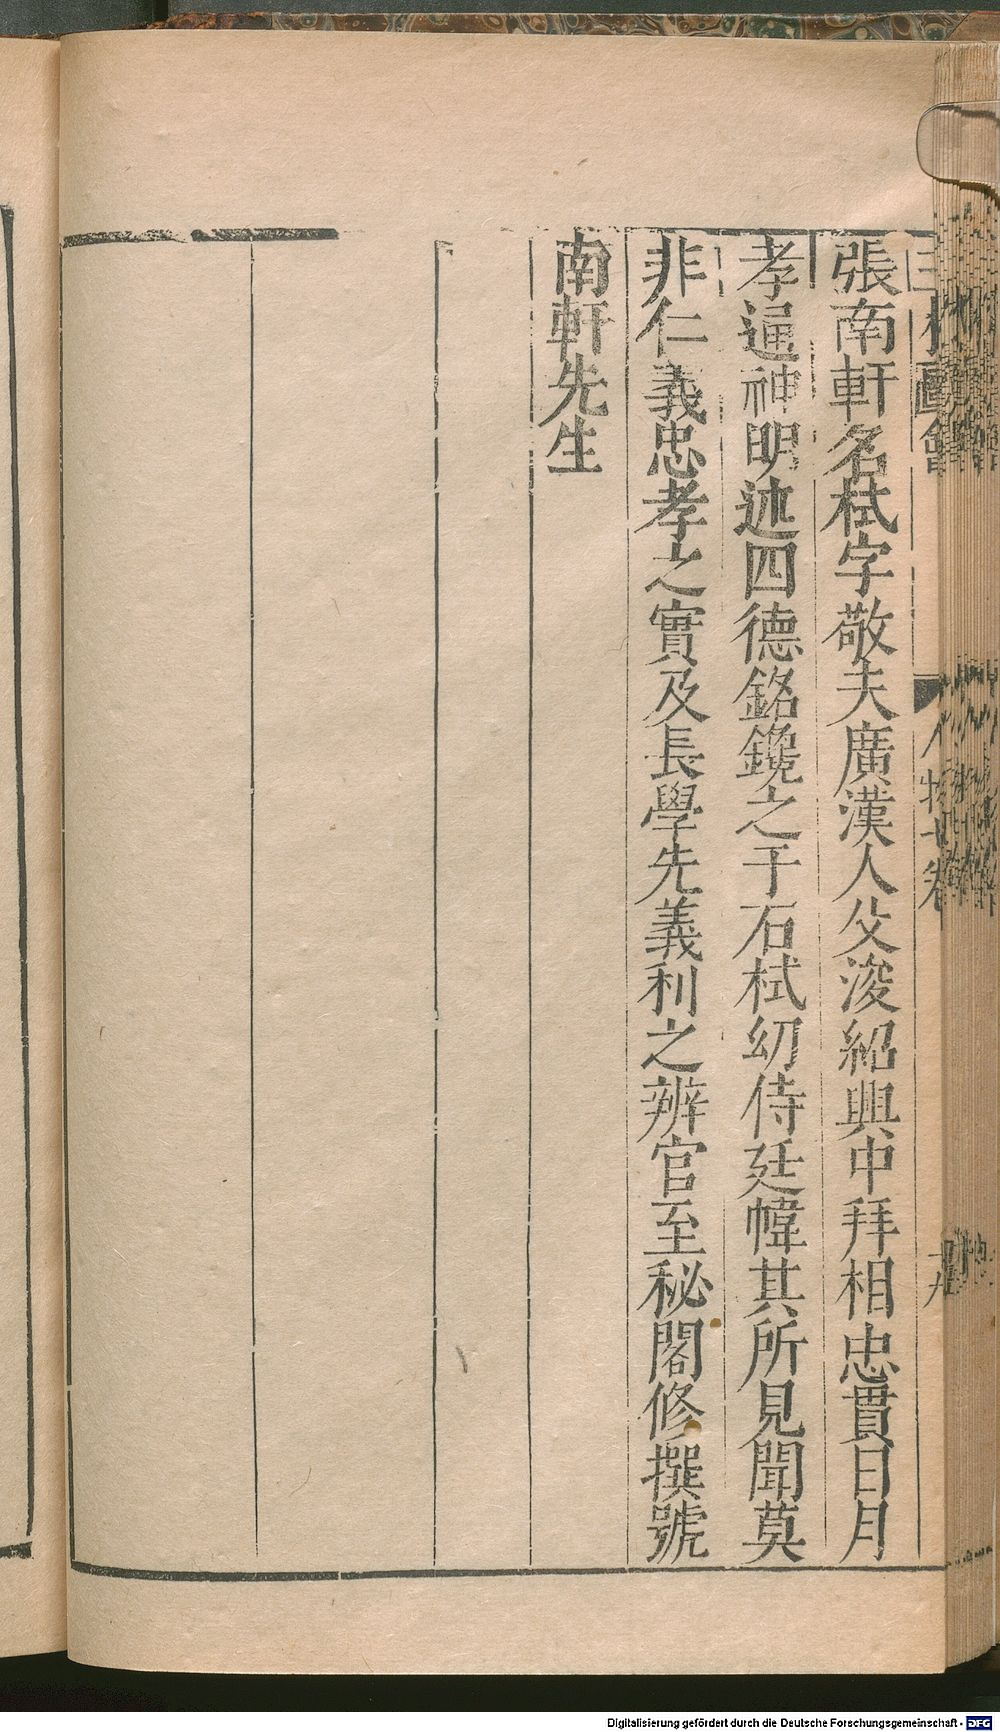 張南軒名栻字敬夫廣漢人父浚紹興中拜相忠貫日月
孝通神明述四德銘鑱之于石栻幼侍廷幃其所見聞莫
非仁義忠孝之實及長學先義利之辨官至秘閣修撰號
南軒先生
Digitalisierung gefördert durch die Deutsche Forschungsgemeinschaft - DFG